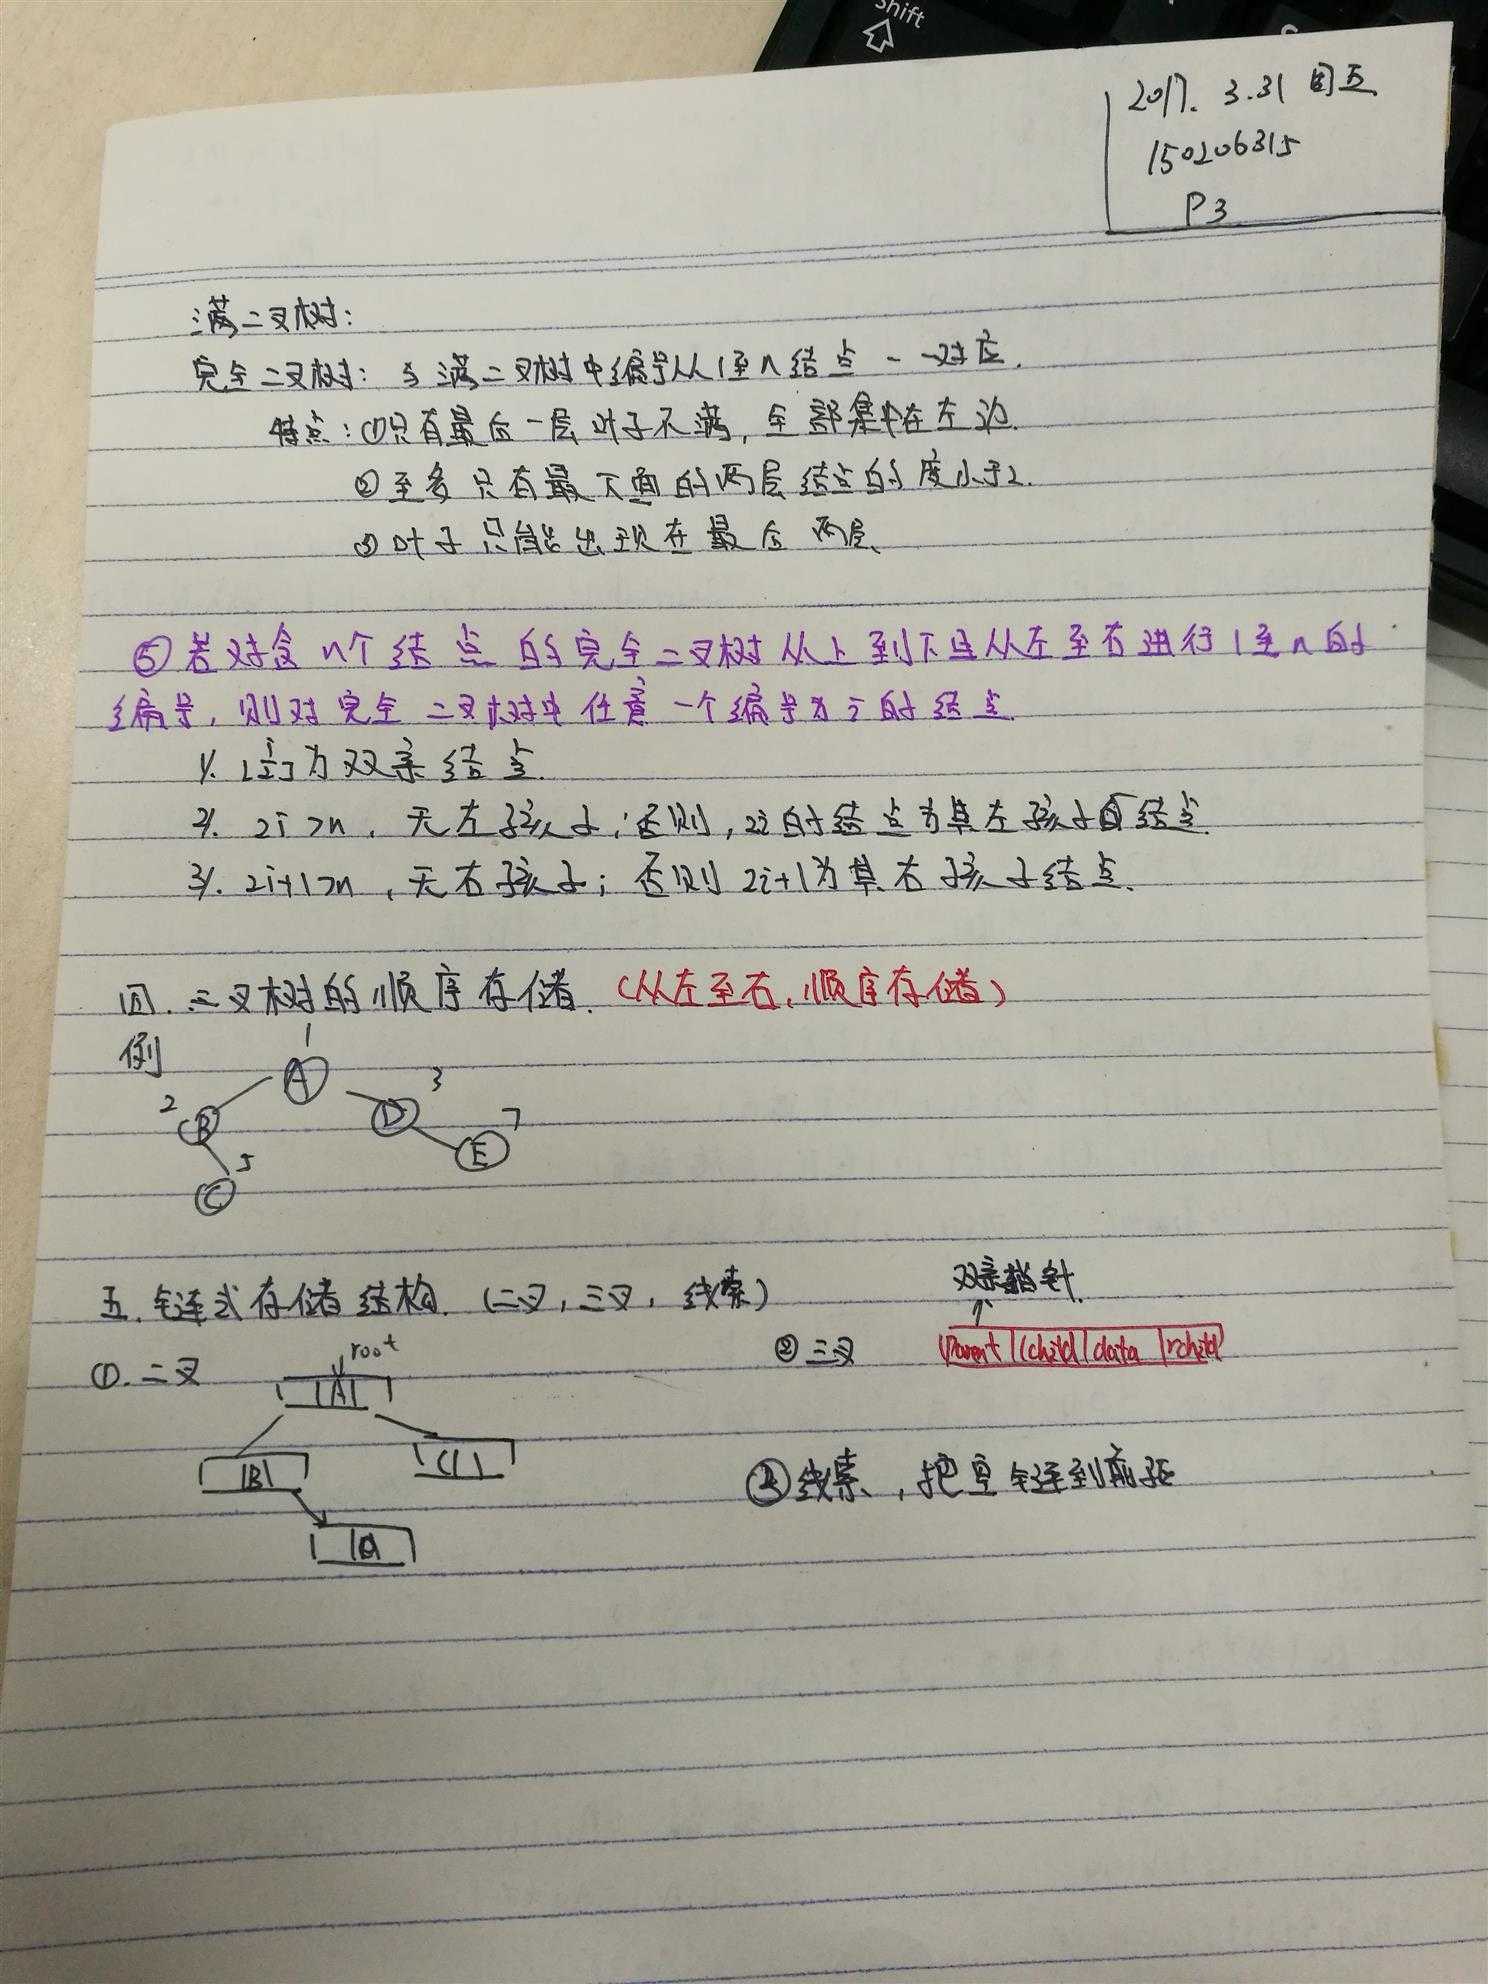 Shift
2017. 3.31 周五
150206315
P3
满二叉树：
完全二叉树：与满二叉树中编号从1至n结点一一对应.
特点：①只有最后一层叶子不满，全部集中在左边.
②至多只有最下面的两层结点的度小于2.
③叶子只能出现在最后两层.
⑤若对含n个结点的完全二叉树从上到下且从左至右进行1至n的
编号，则对完全二叉树中任意一个编号为i的结点.
1/. ⌊i/2⌋为双亲结点.
2/. 2i>n，无左孩子；否则，2i的结点为其左孩子结点
3/. 2i+1>n，无右孩子；否则 2i+1为其右孩子结点.
四. 二叉树的顺序存储. （从左至右，顺序存储）
例
1
A
2
3
B
D
7
5
E
C
五. 链式存储结构. （二叉，三叉，线索）
双亲指针.
①. 二叉
root
②三叉
parent | lchild | data | rchild
A
B
C
D
③线索，把空链到前驱